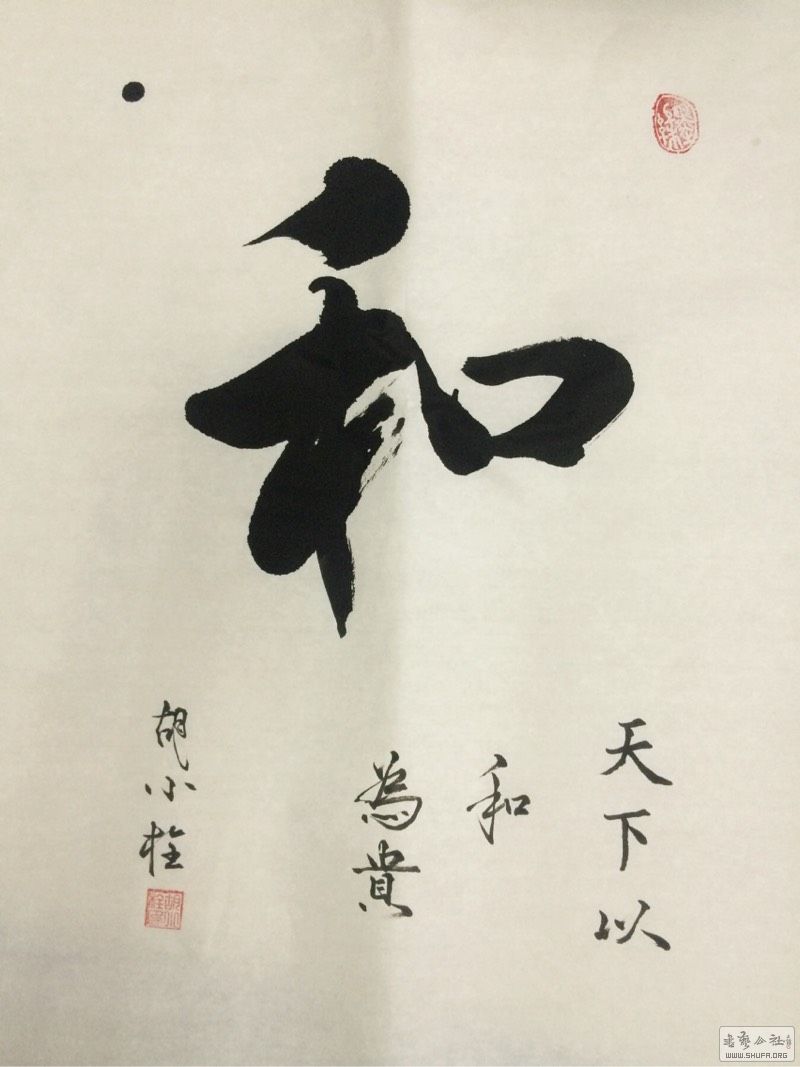 和
天下以
和
為貴
胡小栓
WWW.SHUFA.ORG